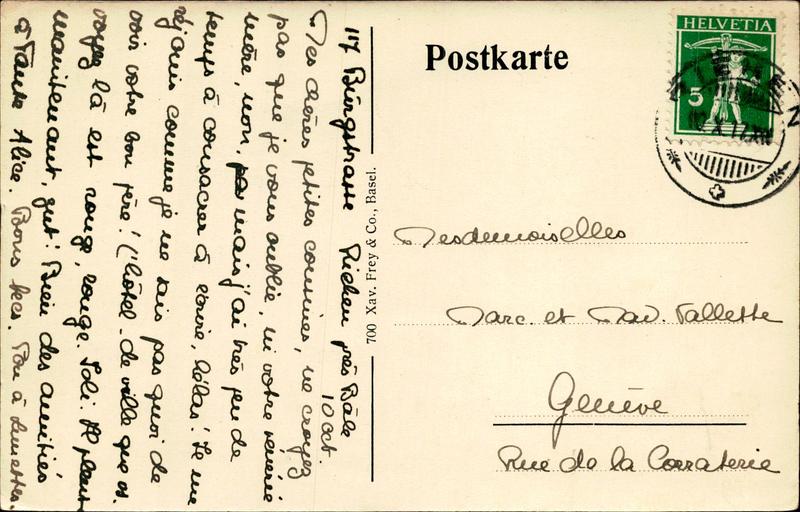 117 Burgstrasse Riehen près Bâle
10 Oct.
Mes chères petites cousines, ne croyez
pas que je vous oublie, ni votre
mère, non, mais j'ai très peu de
temps à consacrer à écrire, hélas! Je me
réjouis comme je ne sais pas quoi de
voir votre bon père! L'hôtel-de-ville que vs.
voyez là est rouge, rouge. Joli. Il pleut
maintenant, gut! Bien des amitiés
à Tante Alice. Bons becs.
700 Xav. Frey & Co., Basel.
Postkarte
HELVETIA
5
RIEHEN
X.17
Mesdemoiselles
Marc. et Mad. Vallette
Genève
Rue de la Corraterie